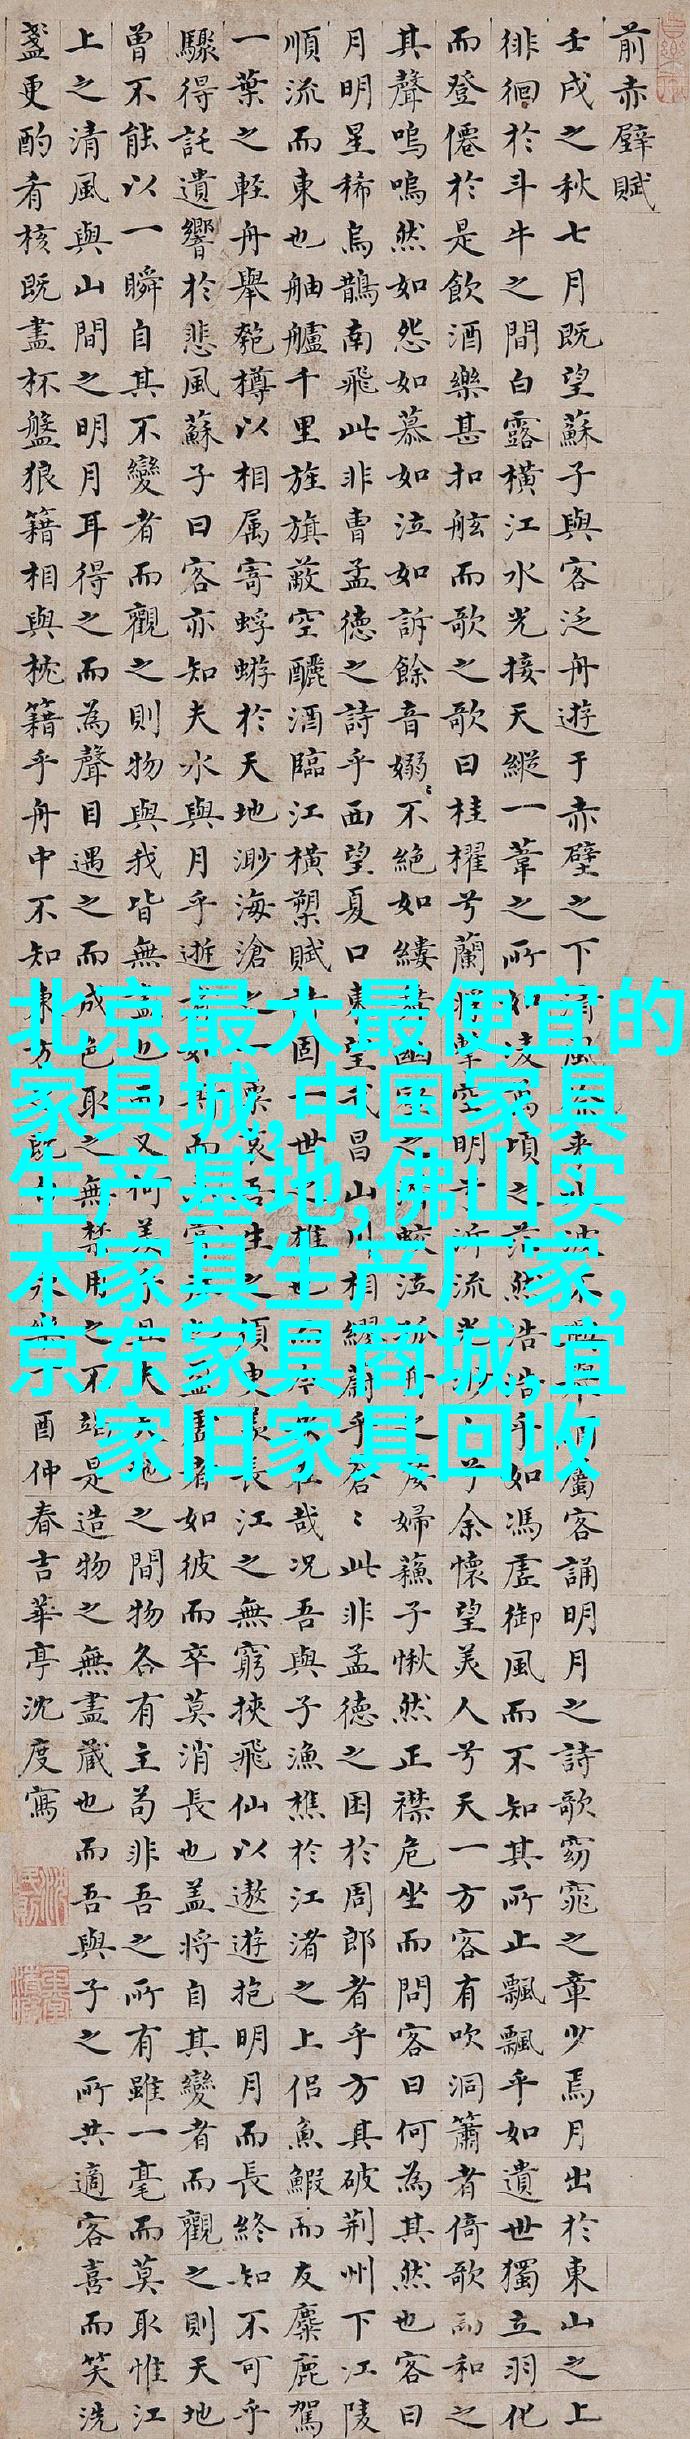 前赤壁賦
壬戌之秋七月既望蘇子與客泛舟遊于赤壁之下風來波不屬客誦明月之詩歌窈窕之章少焉月出於東山之上
徘徊於斗牛之間白露橫江水光接天縱一葦之所如凌萬頃之茫然浩浩乎如馮虛御風而不知其所止飄飄乎如遺世獨立羽化
而登僊於是飲酒樂甚扣舷而歌之歌曰桂櫂兮蘭槳擊空明兮泝流光渺兮余懷望美人兮天一方客有吹洞簫者倚歌而和之
其聲嗚嗚然如怨如慕如泣如訴餘音嫋〻不絕如縷舞幽壑之蛟泣孤舟之嫠婦蘇子愀然正襟危坐而問客曰何為其然也客曰
月明星稀烏鵲南飛此非曹孟德之詩乎西望夏口東望武昌山川相繆鬱乎蒼〻此非孟德之困於周郎者乎方其破荊州下江陵
順流而東也舳艫千里旌旗蔽空釃酒臨江橫槊賦固一世雄也在哉況吾與子漁樵於江渚之上侶魚鰕而友麋鹿駕
一葉之輕舟舉匏樽以相属寄蜉蝣於天地渺海滄之一粟哀吾生之須臾羨長江之無窮挾飛仙以遨遊抱明月而長終知不可乎
驟得託遺響於悲風蘇子曰客亦知夫水與月乎逝而盈虛者如彼而卒莫消長也盖將自其變者而觀之則天地
曾不能以一瞬自其不變者而觀之則物與我皆無盡也而又何羨乎且夫天地之間物各有主苟非吾之所有雖一毫而莫取惟江
上之清風與山間之明月耳得之而為聲目遇之而成色取之無禁用之不竭是造物之無盡藏也而吾與子之所共適客喜而笑洗
盞更酌肴核既盡杯盤狼籍相與枕籍乎舟中不知東方既永樂酉仲春吉華亭沈度寫
北京最大最便宜的
家具城,中国家具
生产基地,佛山实
木家具生产厂家,
京东家具商城,宜
家旧家具回收